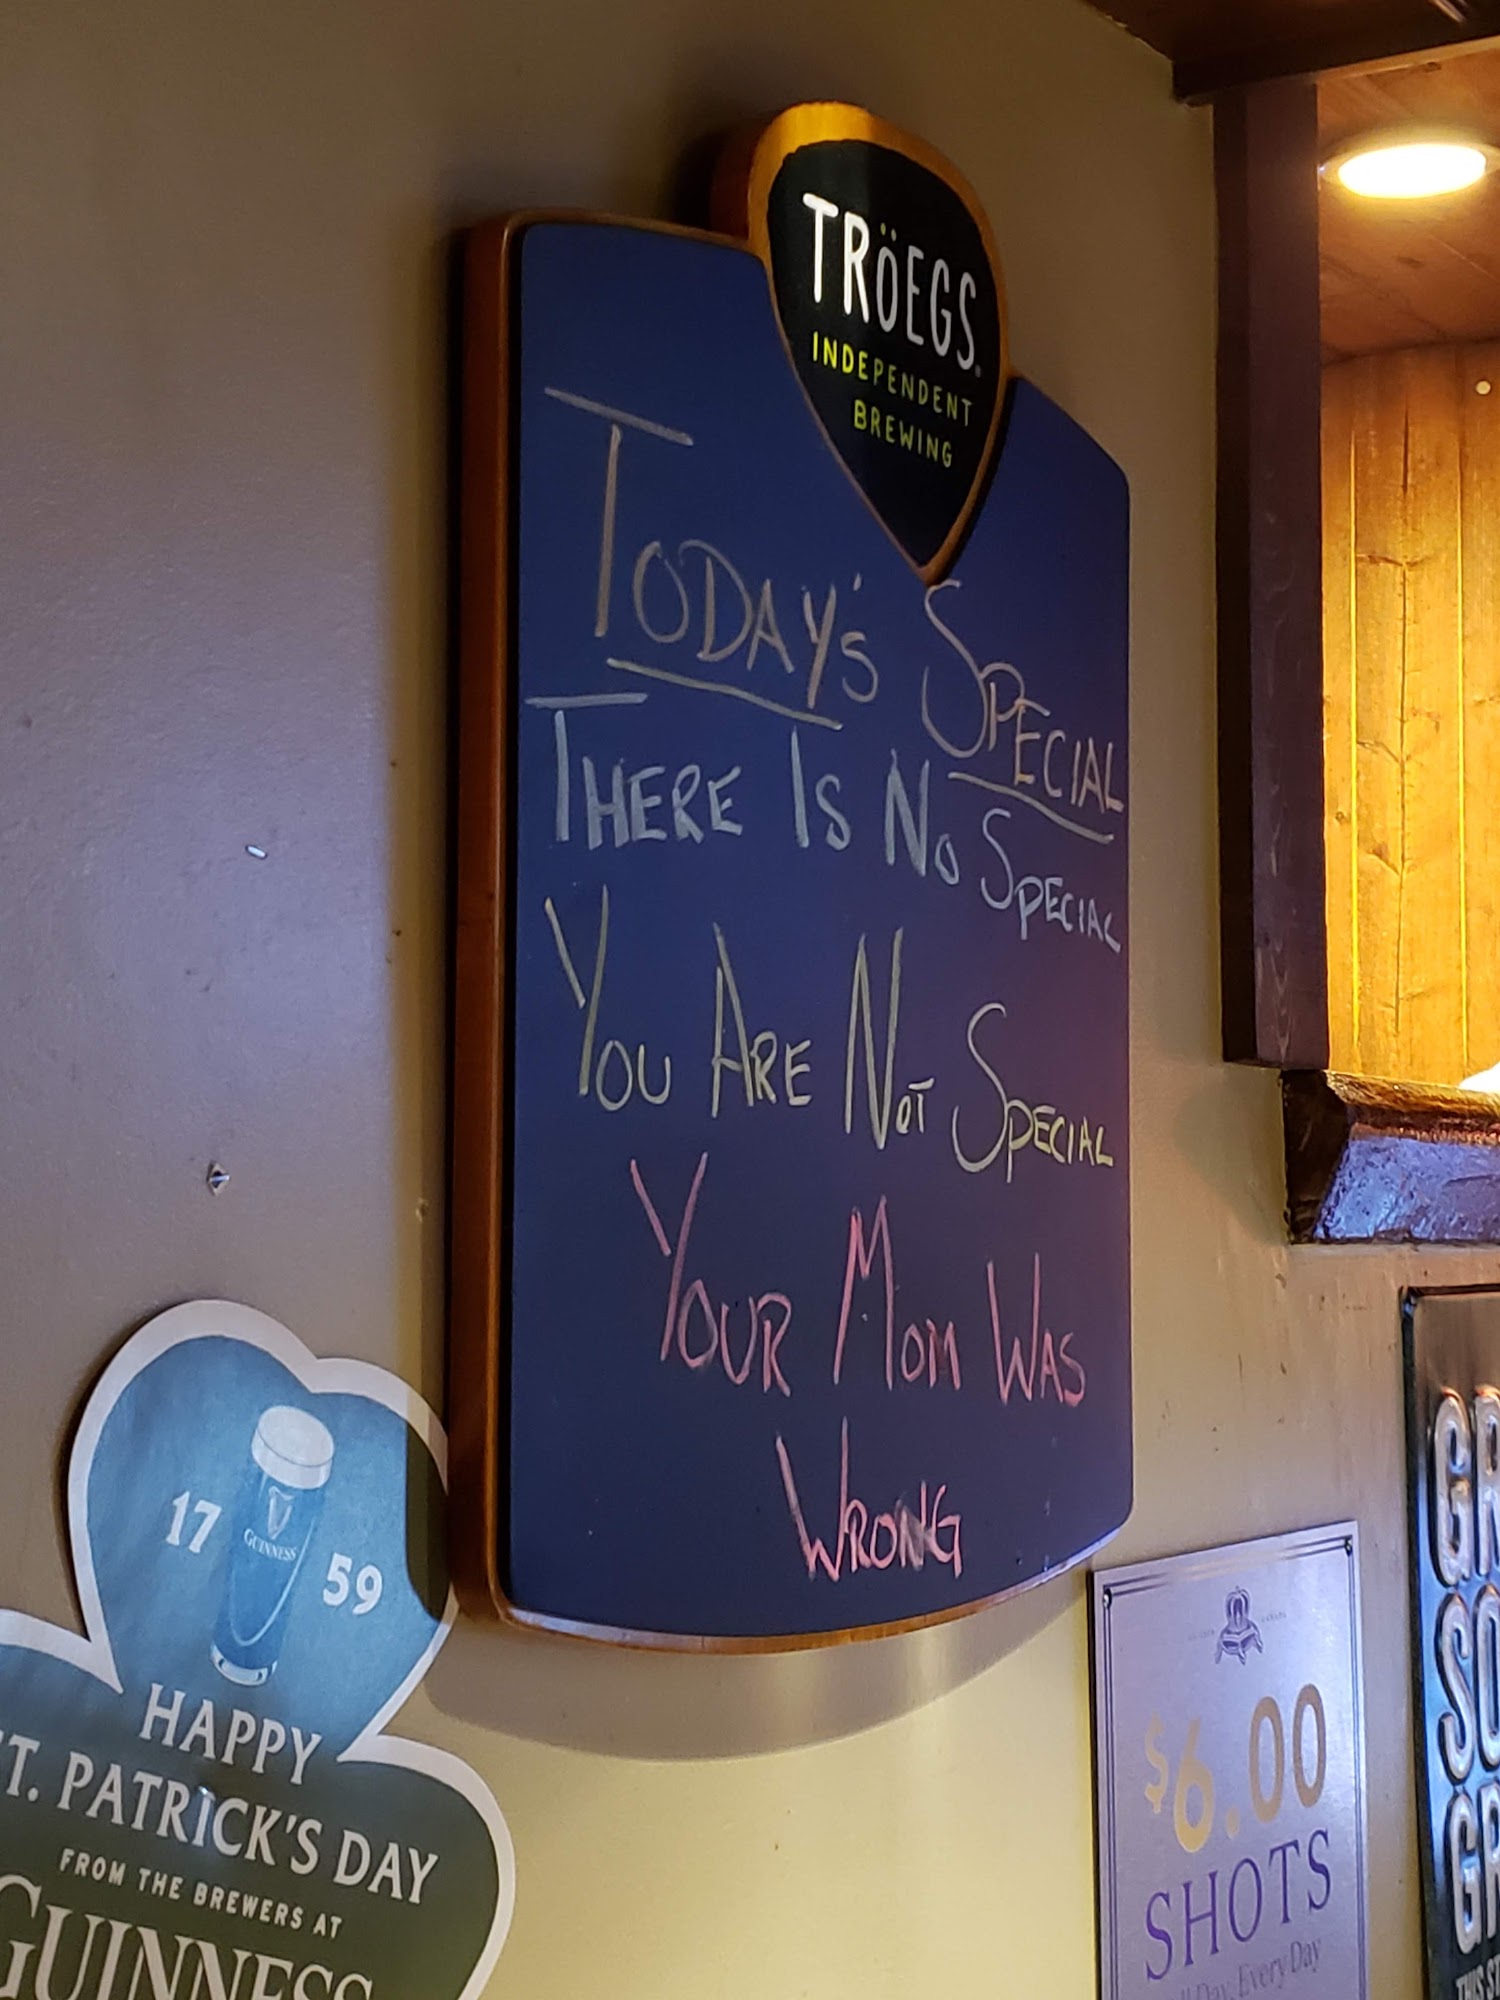 TRÖEGS
INDEPENDENT
BREWING
TODAY'S SPECIAL
THERE IS NO SPECIAL
YOU ARE NOT SPECIAL
YOUR MOM WAS
WRONG
17 59
GUINNESS
HAPPY
ST. PATRICK'S DAY
FROM THE BREWERS AT
GUINNESS
$6.00
SHOTS
Day, Every Day
GR
SO
GR
THIS